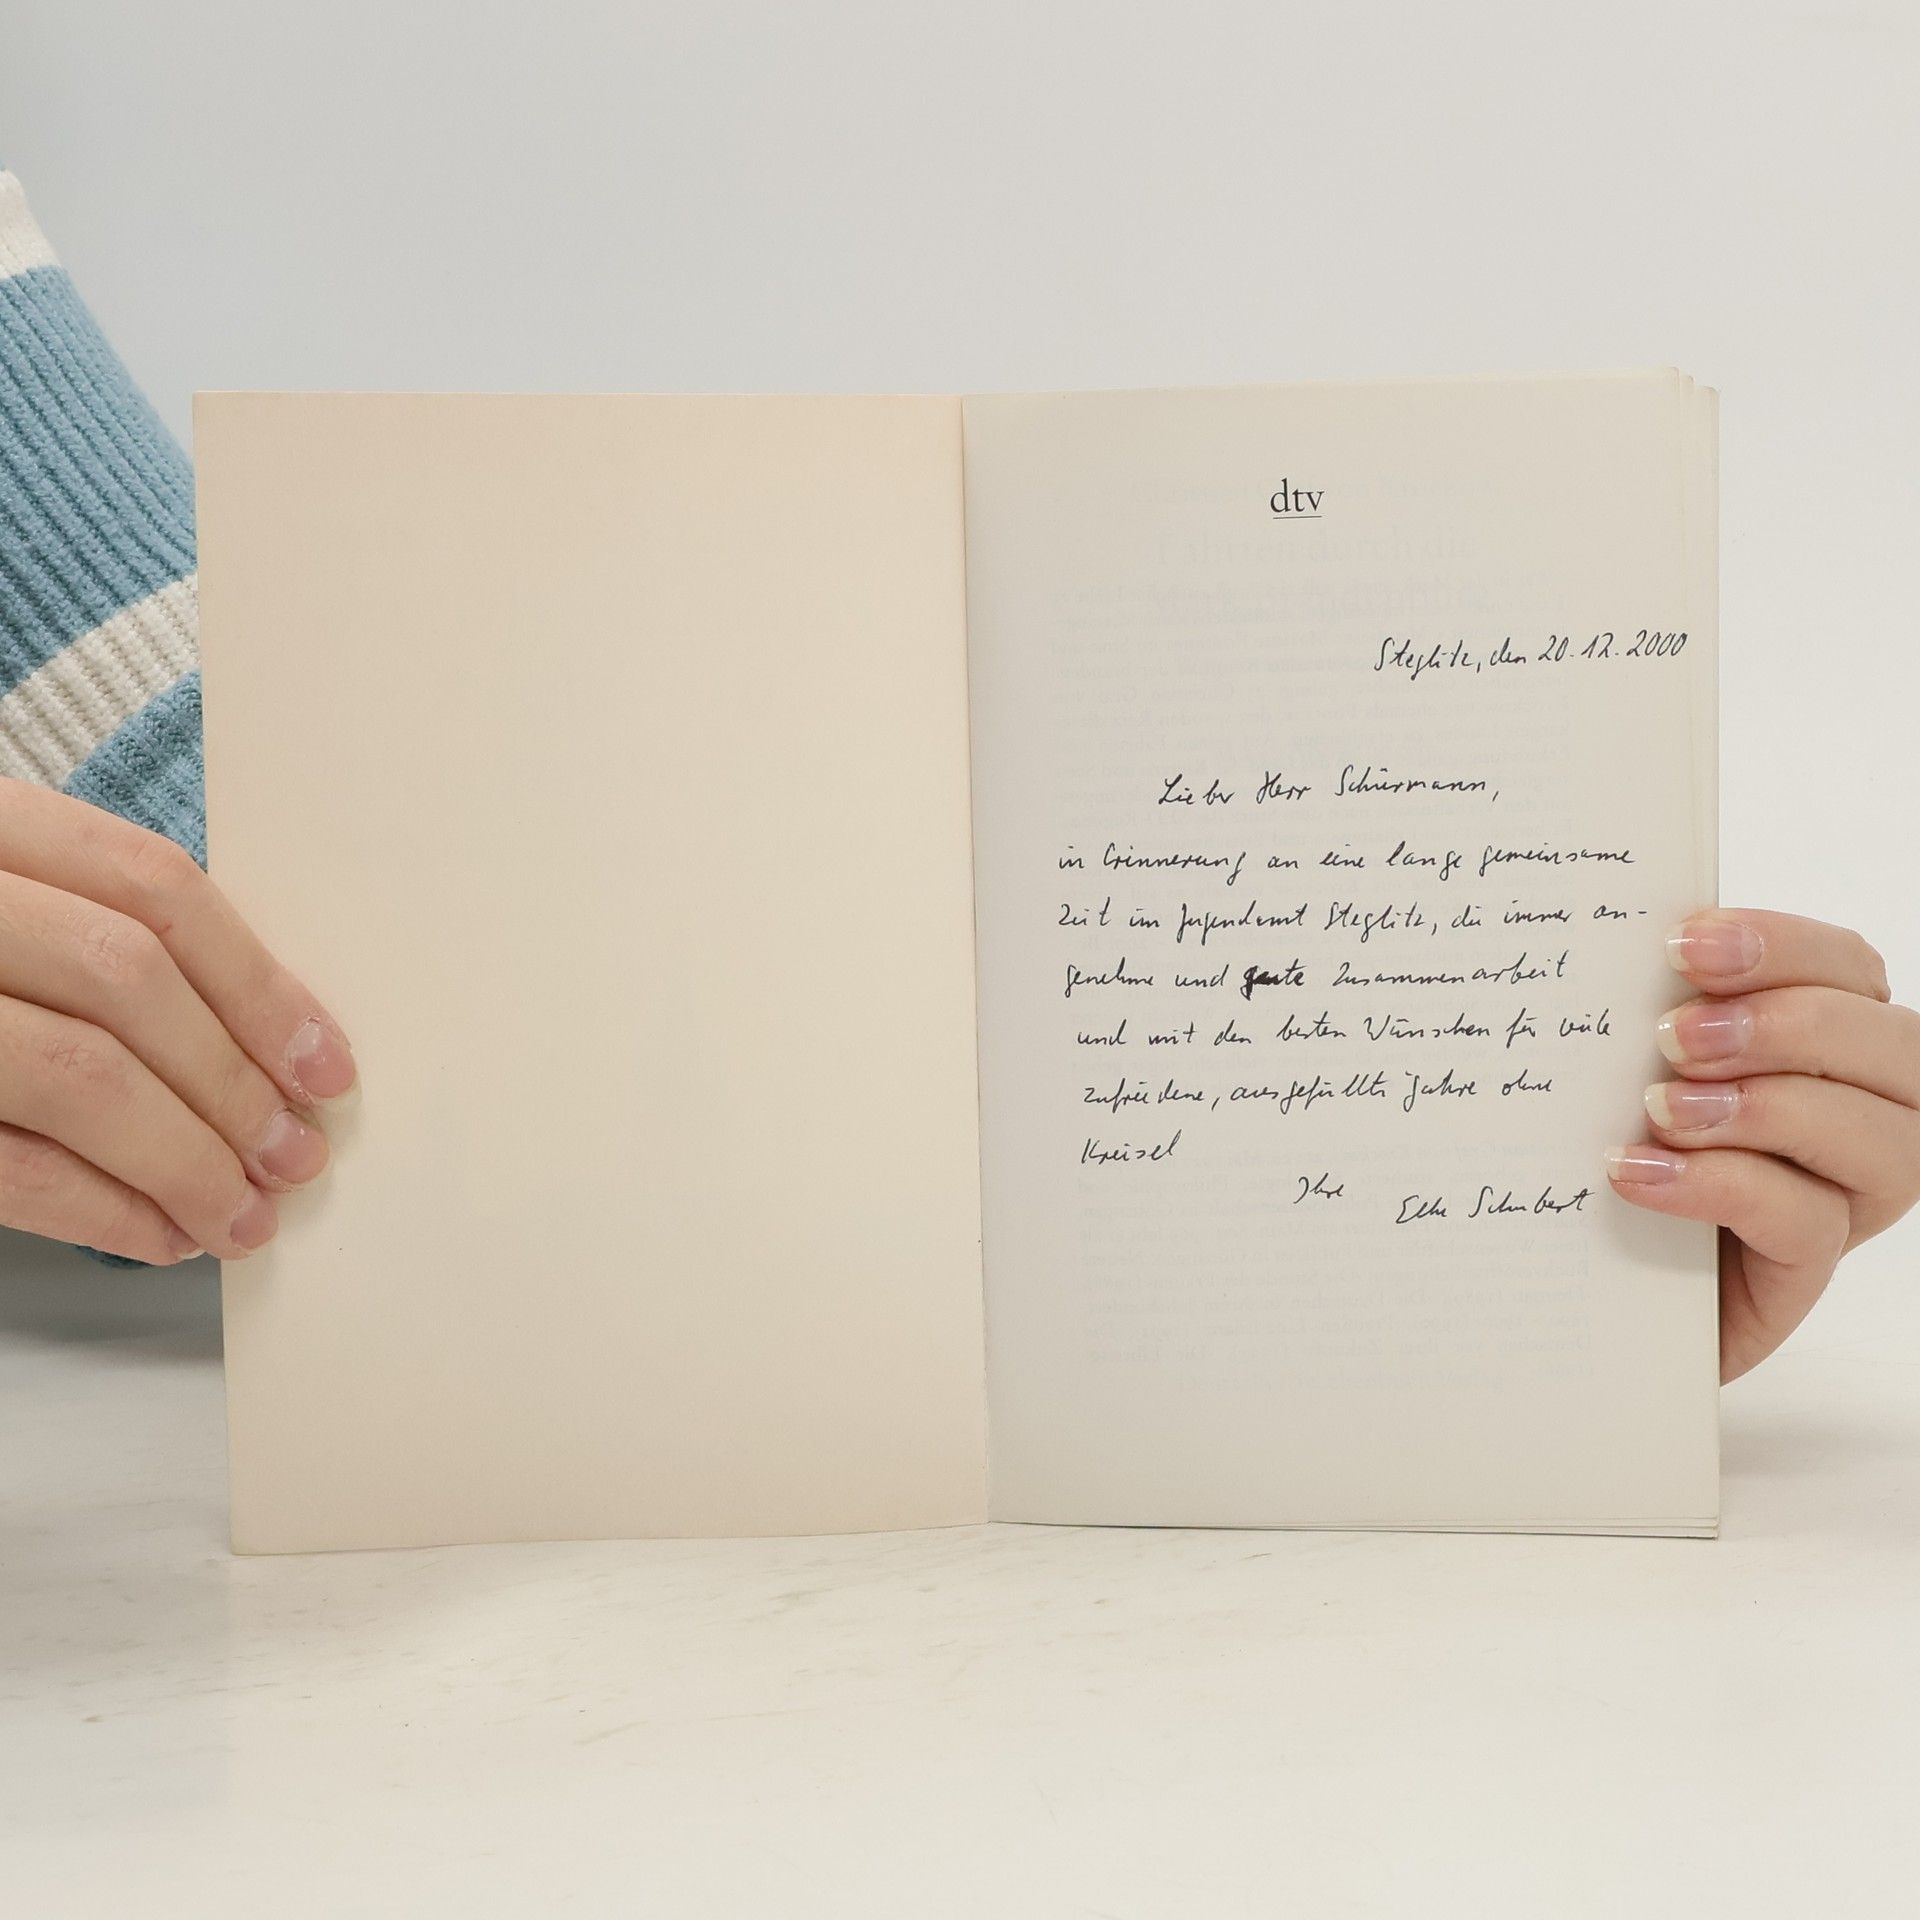 dtv
Steglitz, den 20.12.2000
Lieber Herr Schürmann,
in Erinnerung an eine lange gemeinsame
Zeit im Jugendamt Steglitz, die immer an-
genehme und gute Zusammenarbeit
und mit den besten Wünschen für viele
zufriedene, ausgefüllte Jahre ohne
Kreisel
Ihre Elke Schubert